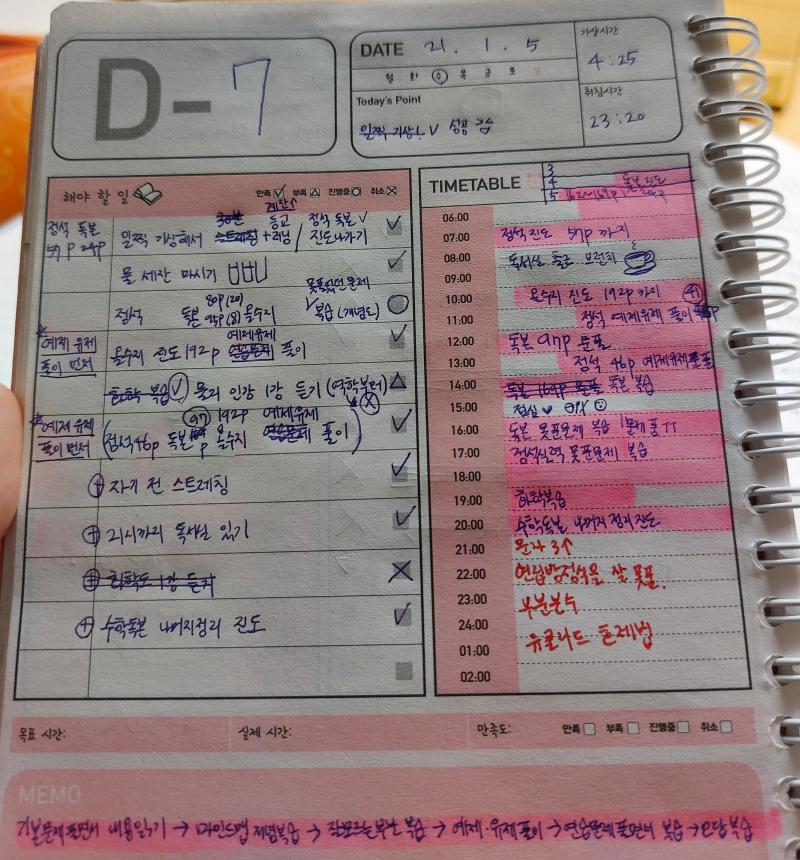 D-7
DATE 21. 1. 5
월 화 수 목 금 토 일
Today's Point
일찍 기상! V 성공
기상시간
4:25
취침시간
23:20
해야 할 일
만족 부족 진행중 취소
정석 독본
57p 24p
일찍 기상해서 스트레칭 + 러닝 / 정석 독본 V
진도나가기
물 세잔 마시기
못풀었던 문제
80p (20)
정석 독본 95p (8) 올수리 복습 (개념도)
예제 유제
풀이 먼저
예제유제
올수리 진도 192p 연습문제 풀이
화학 복습 V 물리 인강 1강 듣기 (역학부터)
예제 유제
풀이 먼저
97 192p 예제유제
(정석46p 독본 p 올수리 연습문제 풀이)
+ 자기 전 스트레칭
+ 21시까지 독서실 있기
+ 화학도 1강 듣기
+ 수학독본 나머지정리 진도
TIMETABLE
3
4 독본 진도
5
06:00
07:00 정석진도 57p 까지
08:00 독서실 출근 브런치
09:00
10:00 올수리 진도 192p 까지
11:00 정석 예제유제 풀이
12:00 독본 97p 문풀
13:00 정석 46p 예제유제문풀
14:00 독본 복습
15:00 점심 ♡
16:00 독본 못푼문제 복습 1문제품ㅠ
17:00 정석실력 못푼문제 복습
18:00
19:00 화학복습
20:00 수학독본 나머지 정리 진도
21:00 문자 3↑
22:00 연립방정식을 잘 못풂.
23:00 부분분수
24:00
01:00 유클리드 호제법
02:00
목표 시간: 실제 시간: 만족도: 만족 부족 진행중 취소
MEMO
기본문제 풀면서 내용읽기 → 마인드맵 개념복습 → 잘모르는부분 복습 → 예제·유제풀이 → 연습문제 풀면서 복습 → 오답 복습